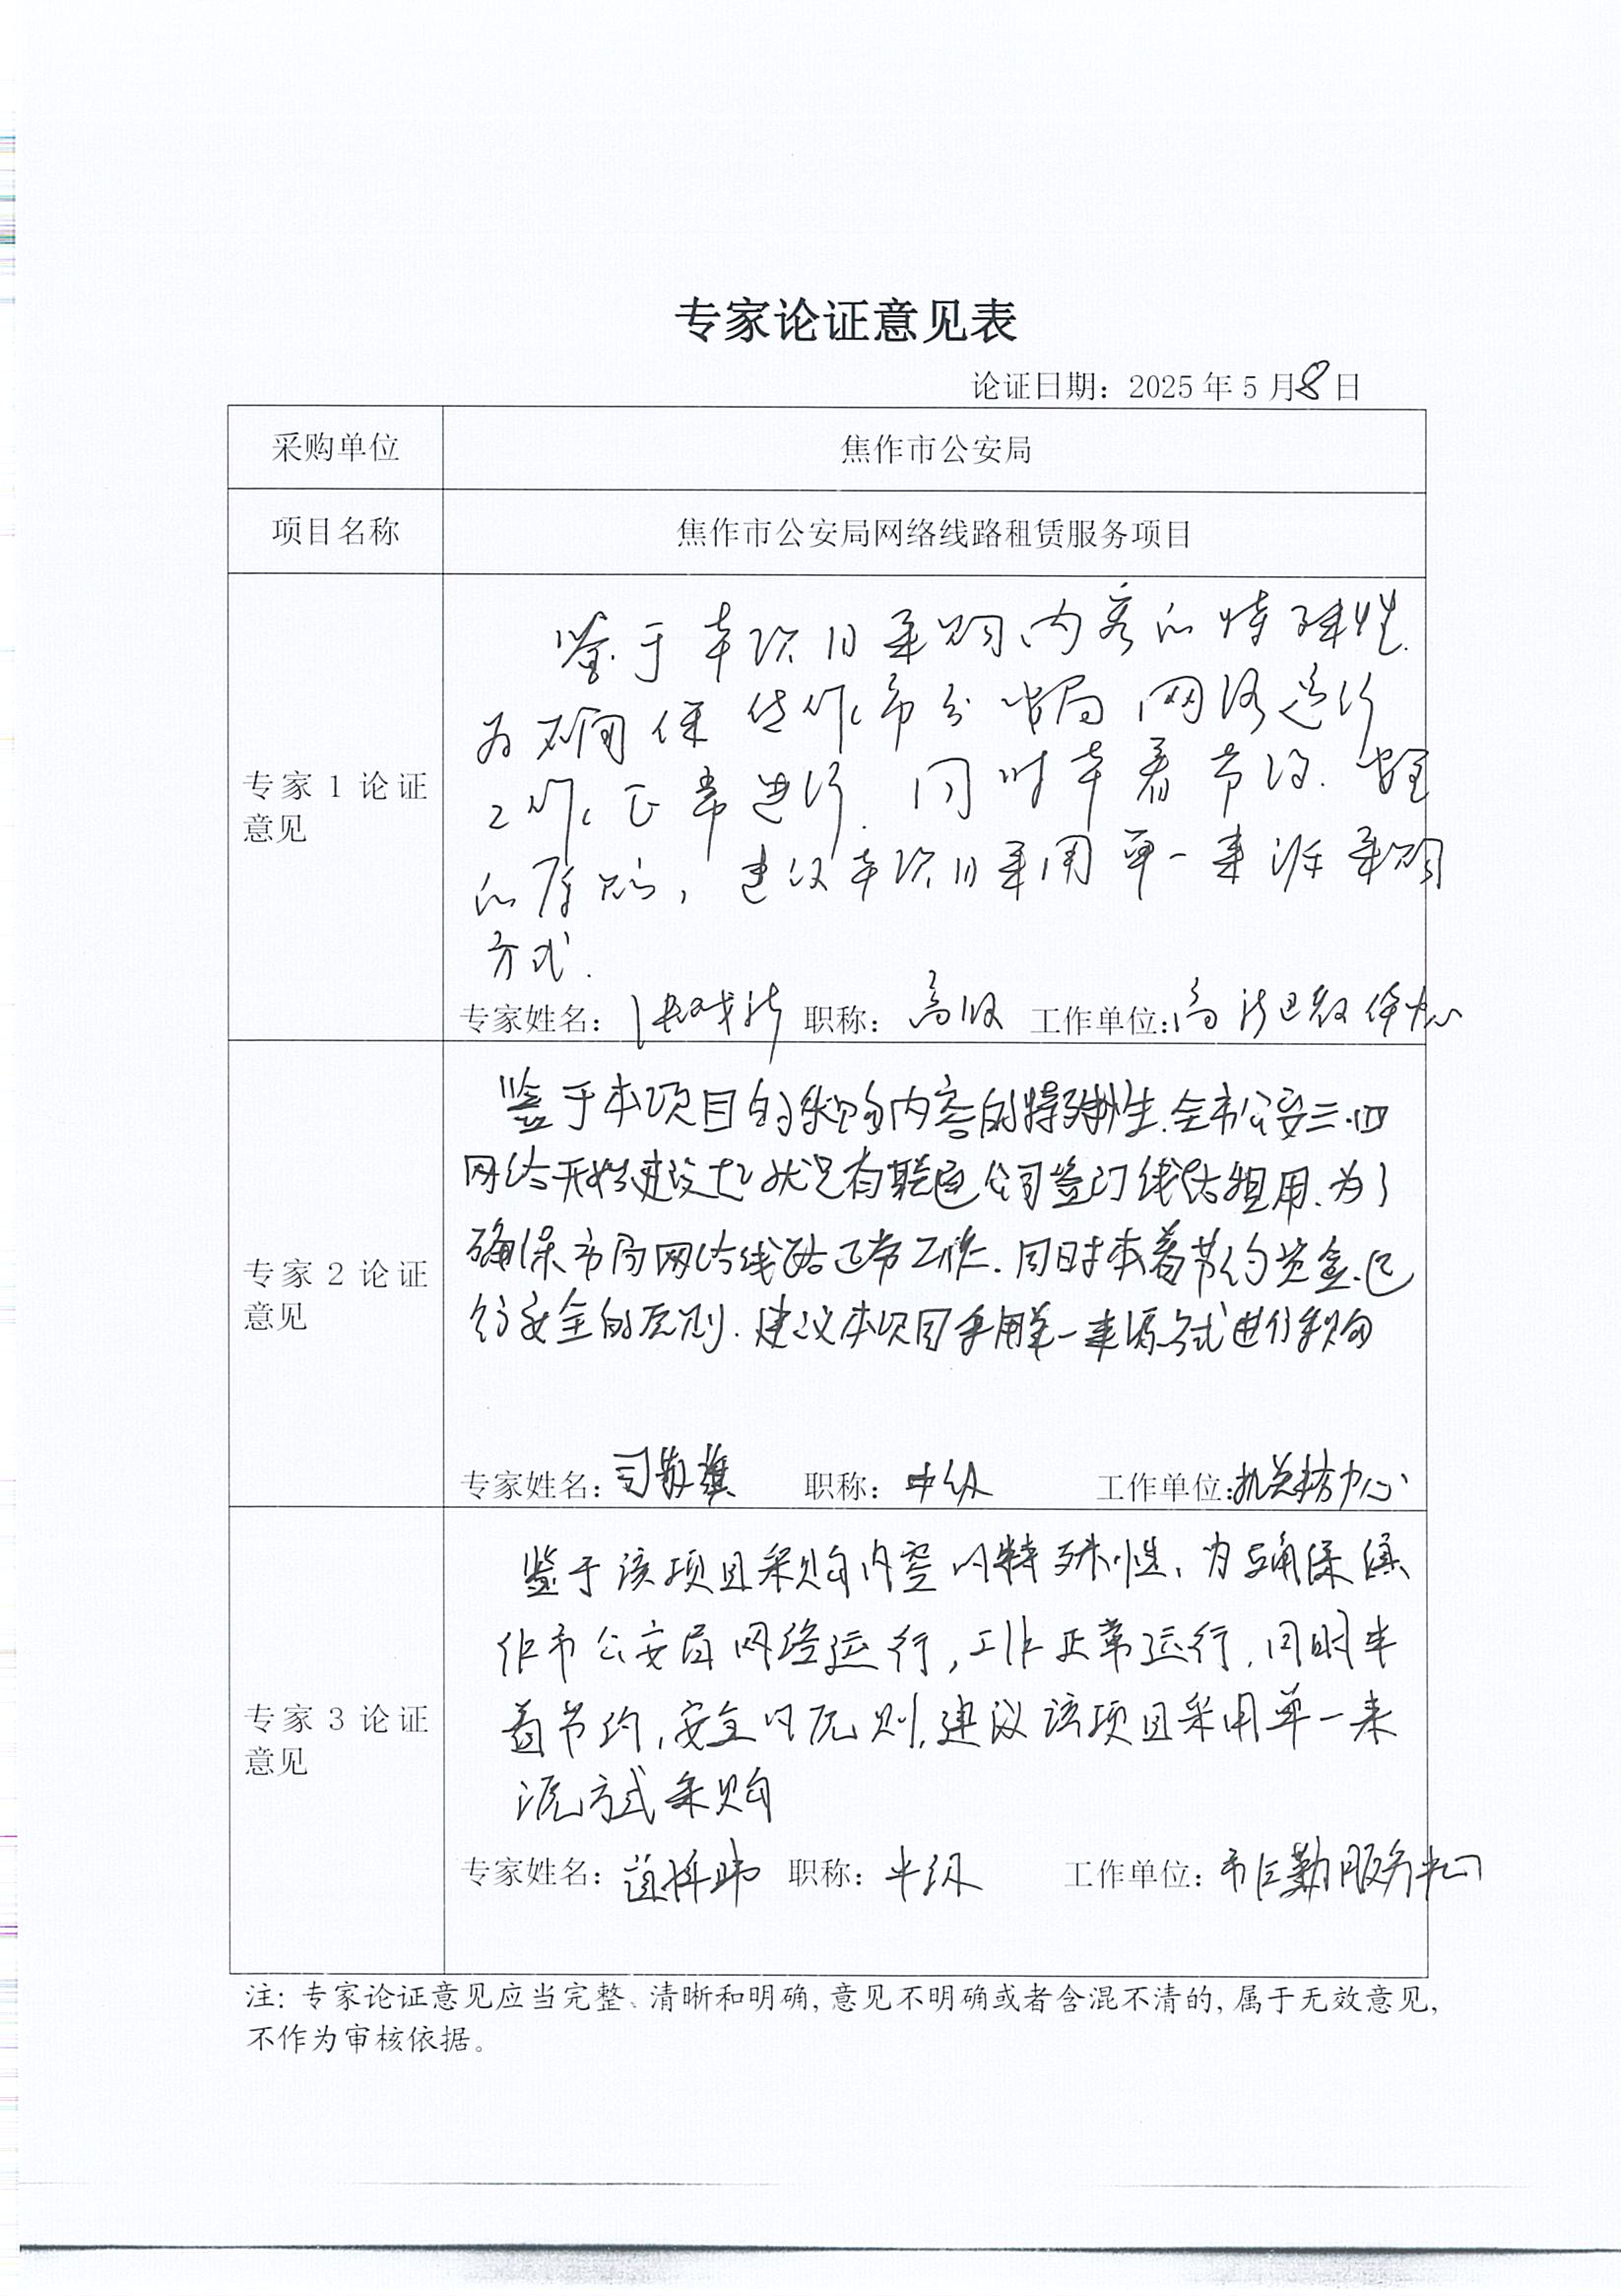 专家论证意见表
论证日期：2025年5月8日
采购单位
焦作市公安局
项目名称
焦作市公安局网络线路租赁服务项目
专家1论证
意见
鉴于本项目采购内容的特殊性.
为确保焦作市公安局网络运行
工作正常进行.同时本着节约.安全
的原则，建议本项目采用单一来源采购
方式.
专家姓名： 职称：高级 工作单位：高
专家2论证
意见
鉴于本项目的采购内容的特殊性.全市公安三.四
网络开始建设 状况有联通公司签订线路租用.为了
确保市局网络线路正常工作.同时本着节约资金.运
行安全的原则.建议本项目采用单一来源方式进行采购
专家姓名：司 职称：中级 工作单位：机关 中心
专家3论证
意见
鉴于该项目采购内容的特殊性，为确保焦
作市公安局网络运行，工作正常运行.同时本
着节约，安全的原则，建议该项目采用单一来
源方式采购
专家姓名： 职称：中级 工作单位：市 勤服务中心
注：专家论证意见应当完整、清晰和明确，意见不明确或者含混不清的，属于无效意见，
不作为审核依据。